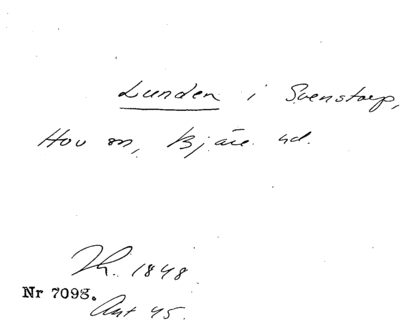 Lunden i Svenstorp,
Hov sn, Bjäre hd.
Th. 1848
Nr 7098.
Ant 45.